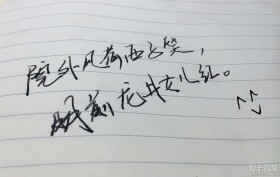 院外风荷西子笑，
明前龙井女儿红。